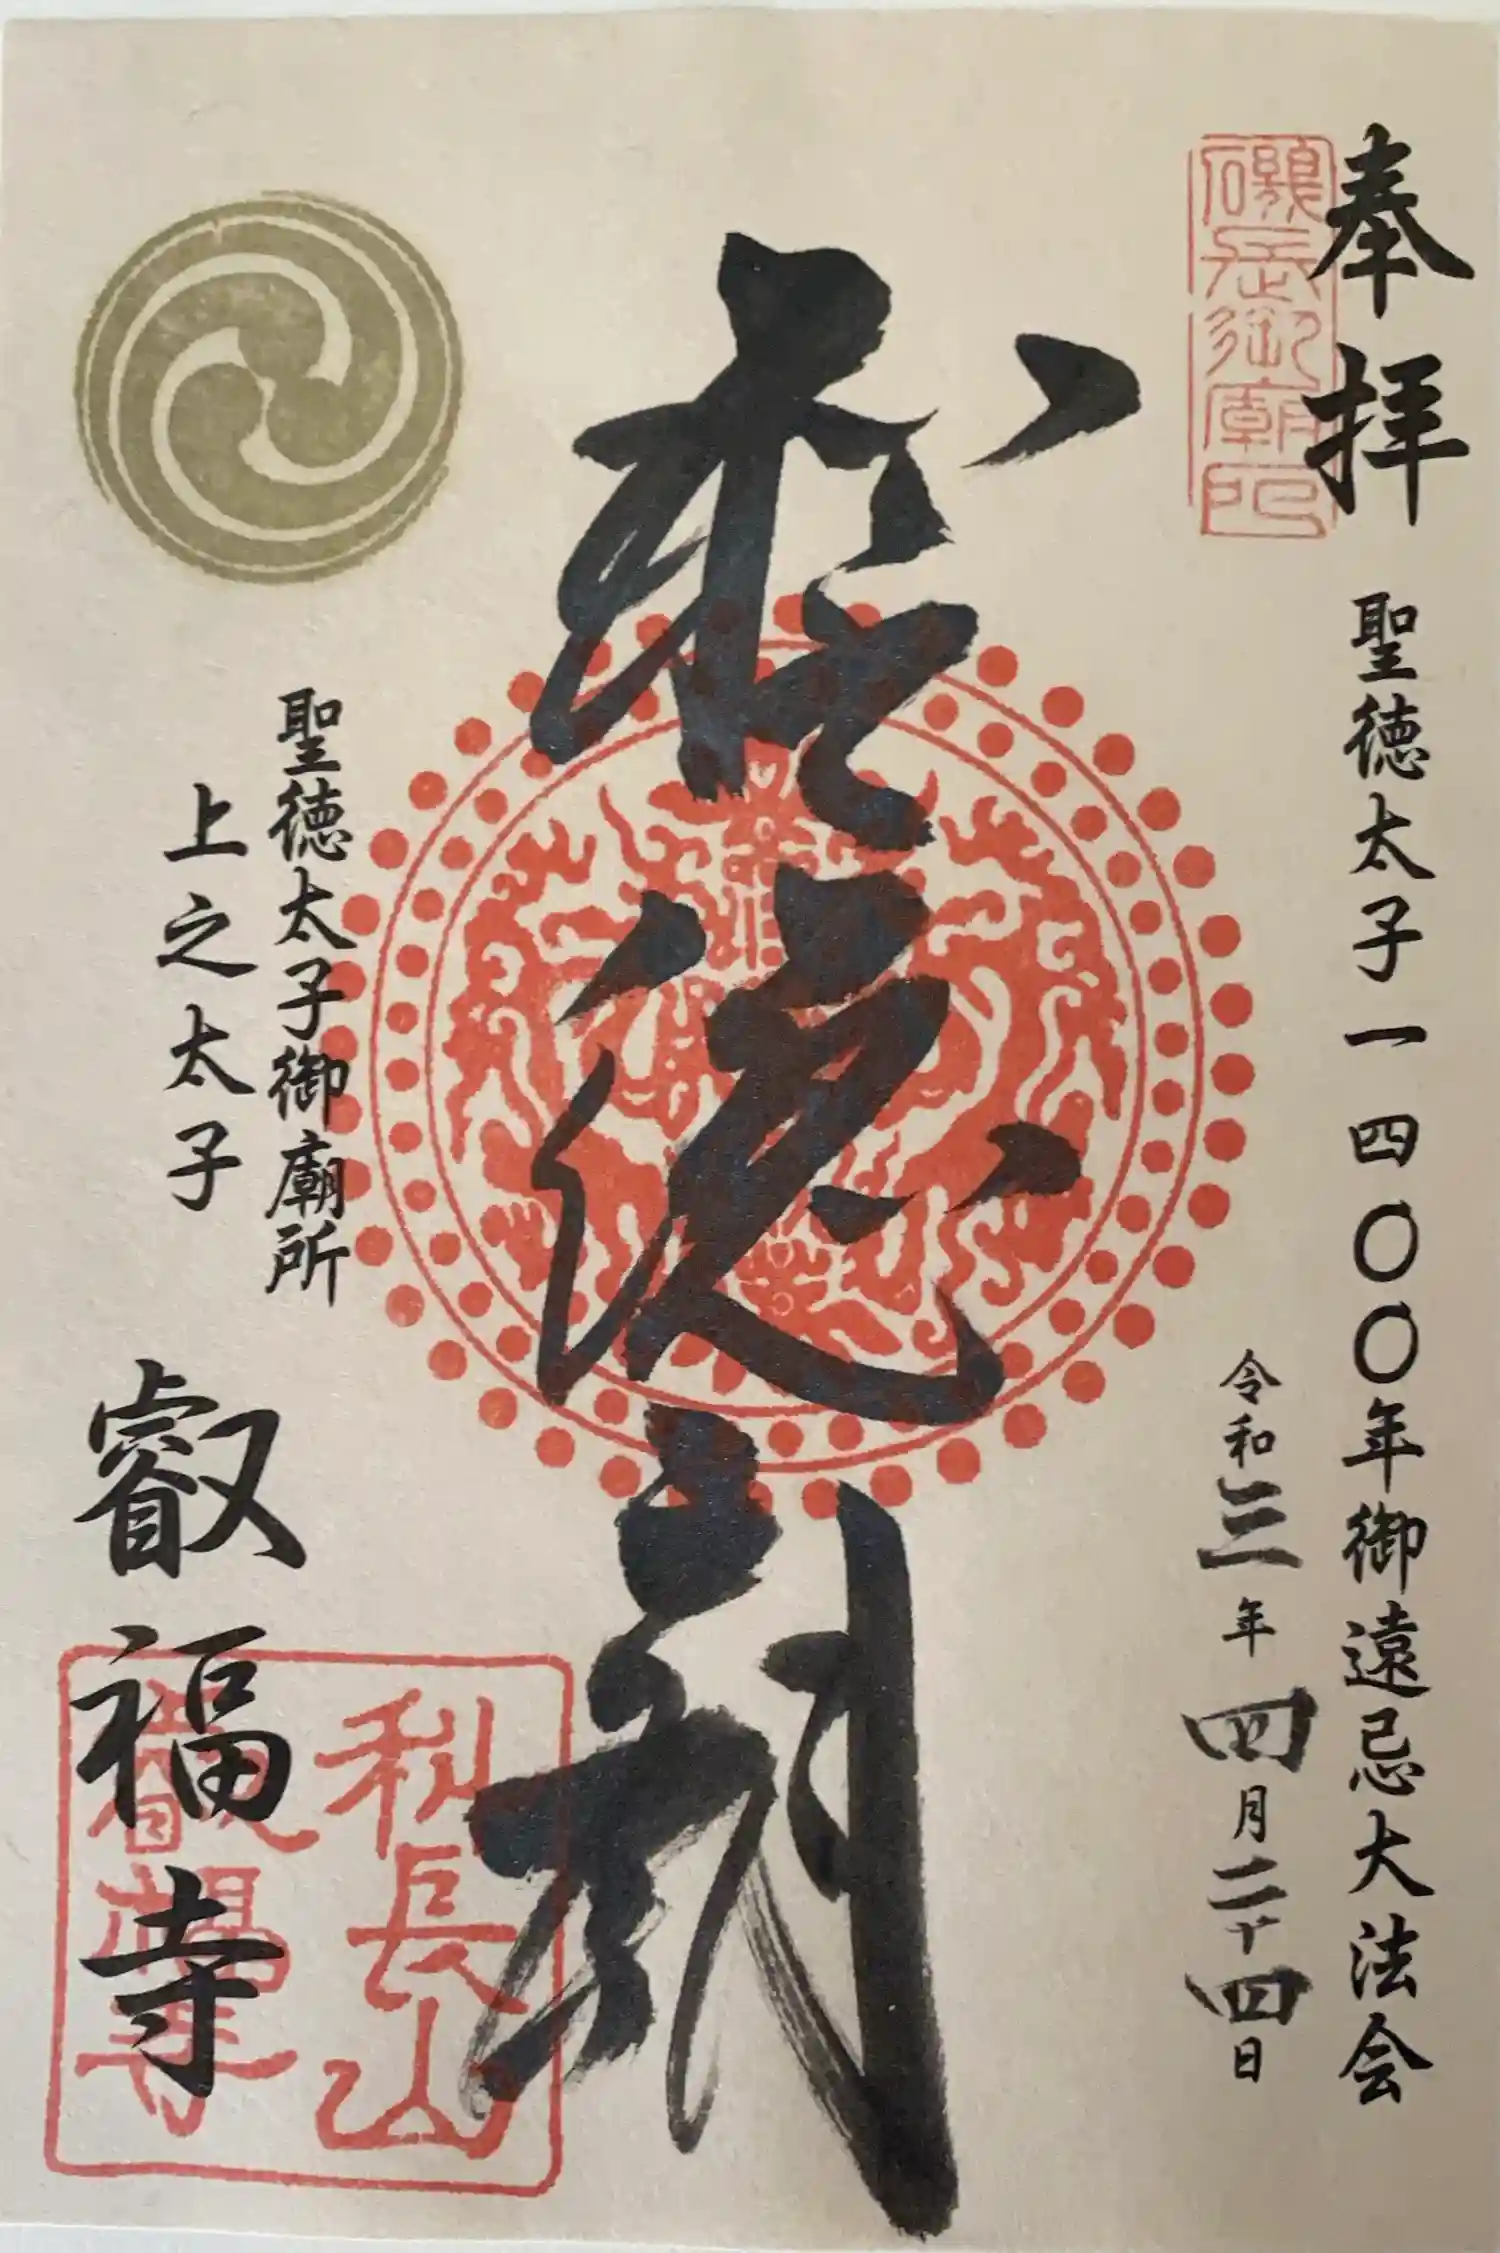 奉拝
磯長御廟印
聖徳太子一四〇〇年御遠忌大法会
令和三年四月二十四日
聖徳太子御廟所
上之太子
叡福寺
科長山
叡福寺